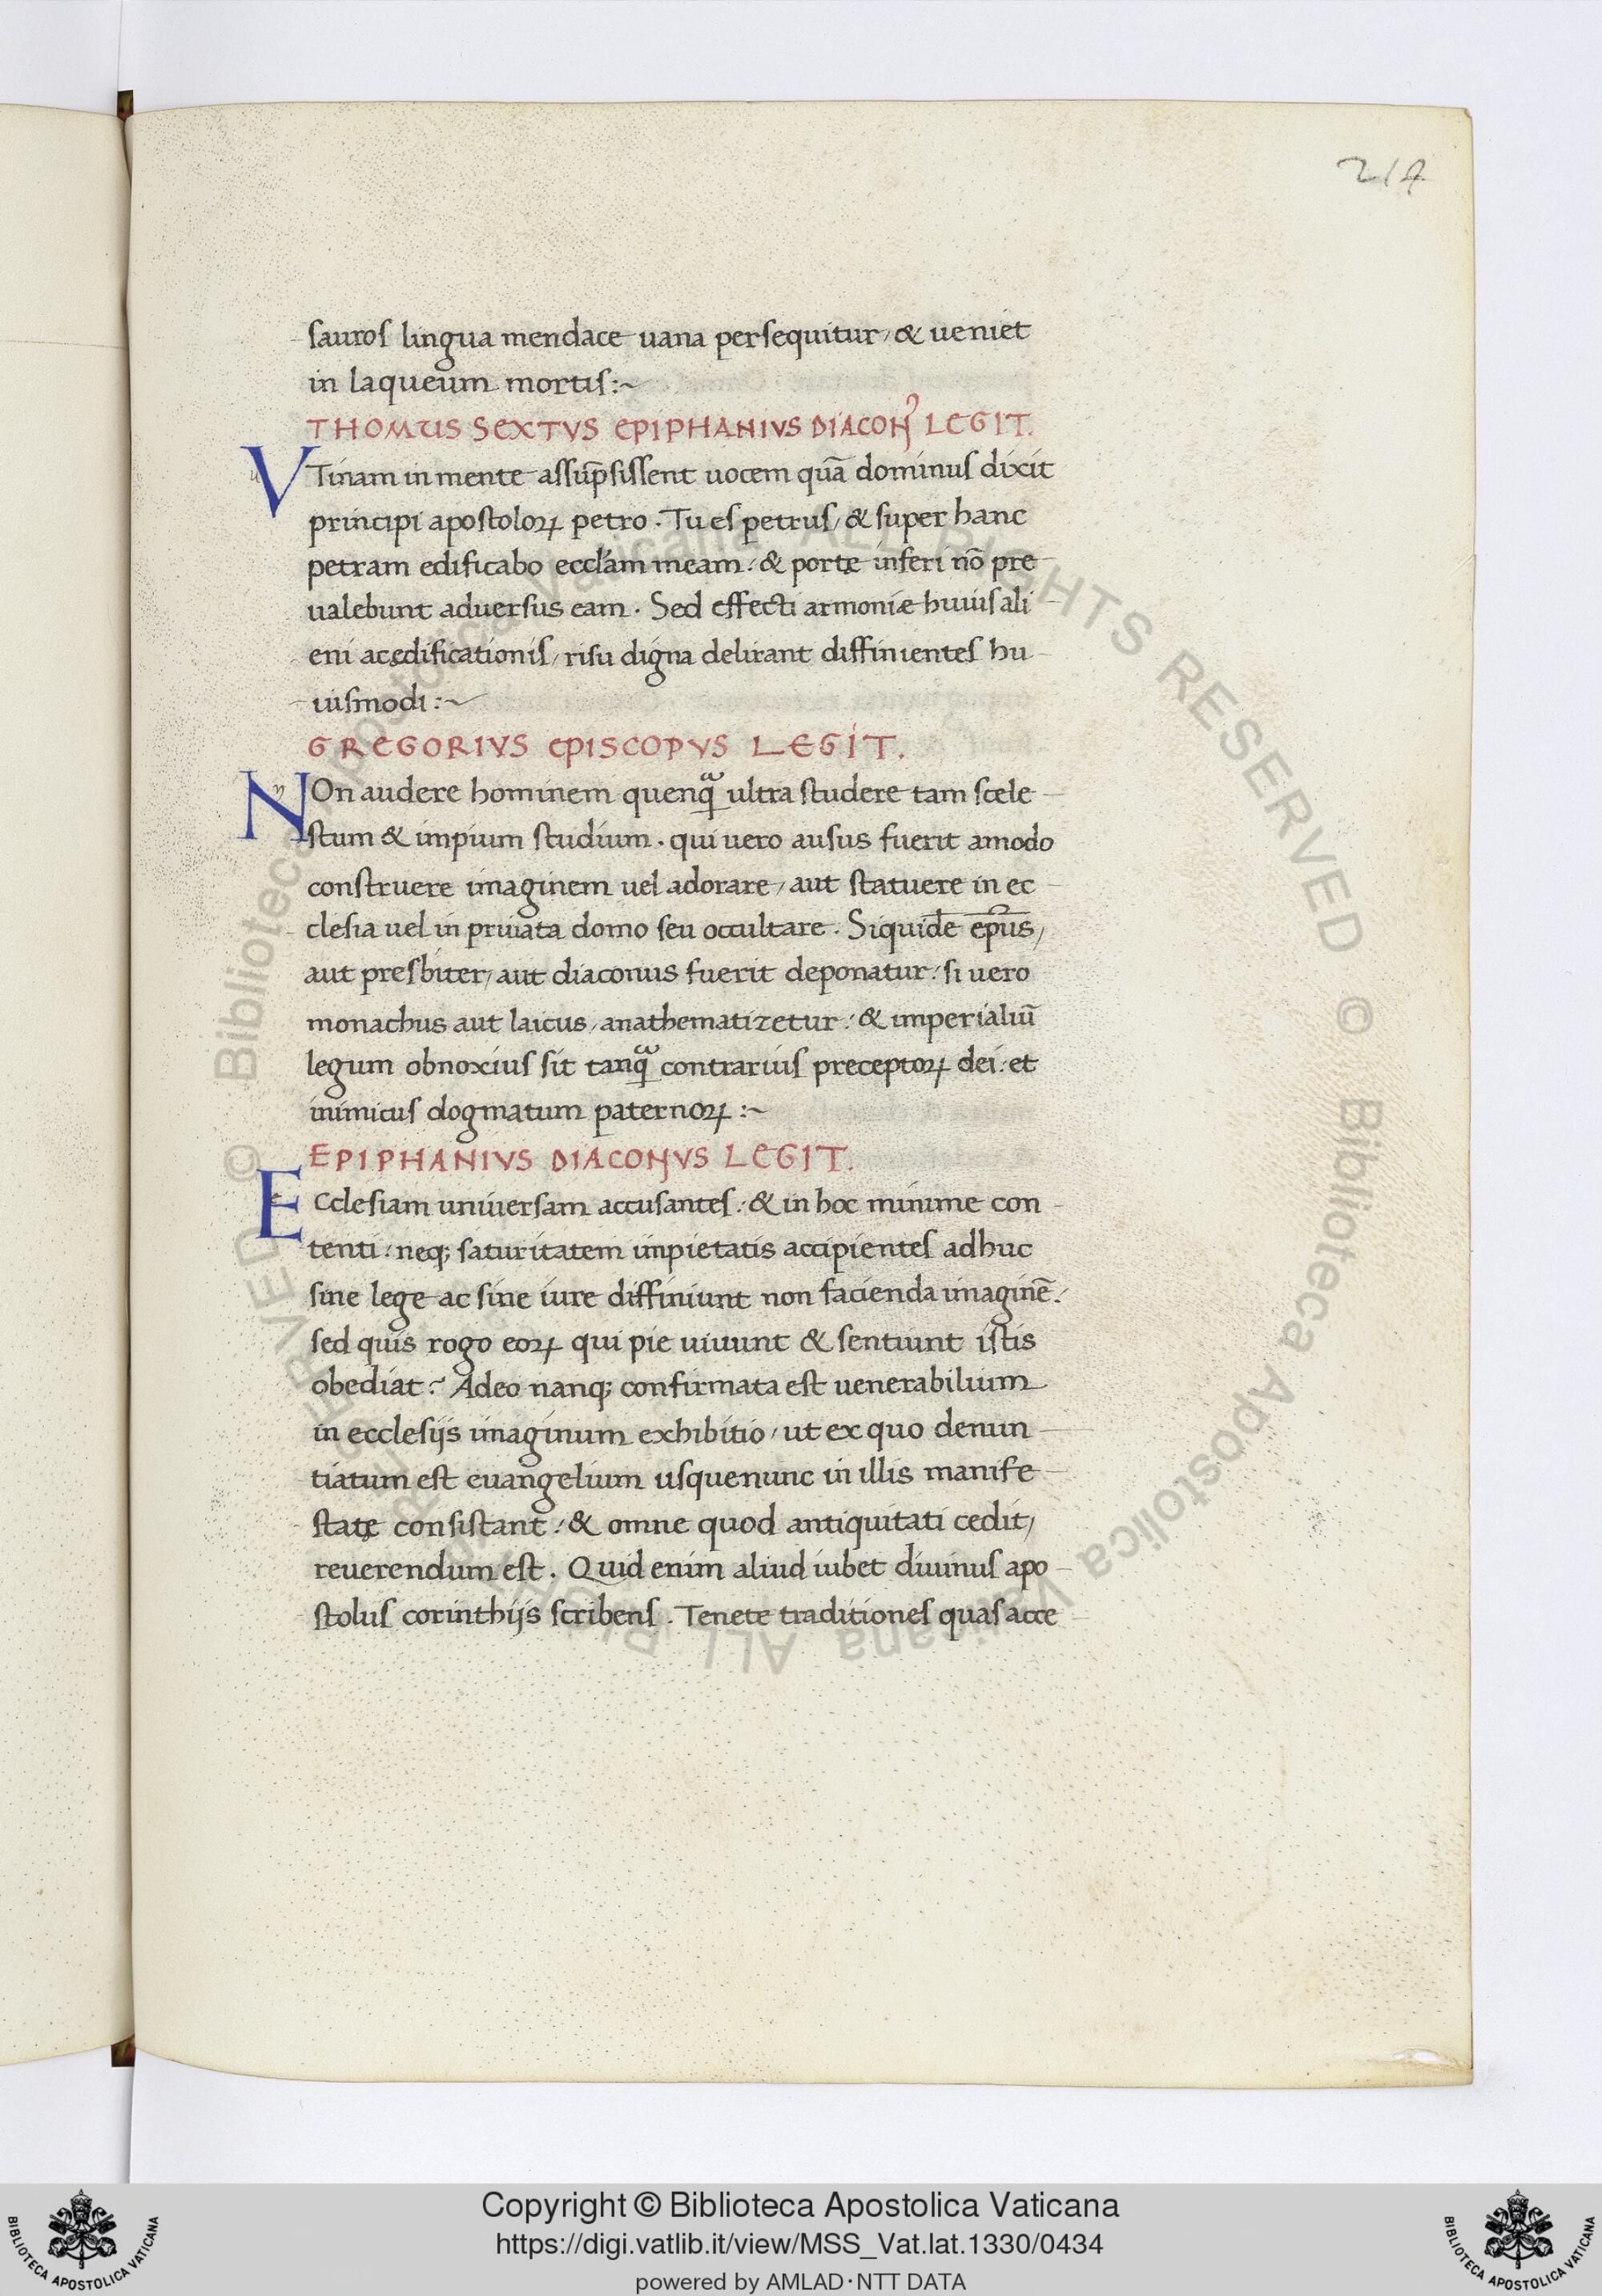 214
sauros lingua mendace uana persequitur, & ueniet
in laqueum mortis:~
THOMUS SEXTVS EPIPHANIVS DIACONꝰ LEGIT.
VTinam in mente assūpsissent uocem quā dominus dixit
principi apostoloꝝ petro. Tu es petrus, & super hanc
petram edificabo eccl'am meam: & portę inferi nō pre
ualebunt aduersus eam. Sed effecti armoniæ huius ali
eni acędificationis, risu digna delirant diffinientes hu
iusmodi:~
GREGORIVS EPISCOPVS LEGIT.
NOn audere hominem quenqᷓ ultra studere tam scele
stum & impium studium. qui uero ausus fuerit amodo
construere imaginem uel adorare, aut statuere in ec
clesia uel in priuata domo seu occultare. Siquidē ep̄us,
aut presbiter, aut diaconus fuerit deponatur: si uero
monachus aut laicus, anathematizetur: & imperialiū
legum obnoxius sit tanqᷓ contrarius preceptoꝝ dei: et
inimicus dogmatum paternoꝝ:~
EPIPHANIVS DIACONVS LEGIT.
ECclesiam uniuersam accusantes: & in hoc minime con
tenti: neq; saturitatem impietatis accipientes adhuc
sine lege ac sine iure diffiniunt non facienda imaginē:
sed quis rogo eoꝝ qui pie uiuunt & sentiunt istis
obediat? Adeo nanq; confirmata est uenerabilium
in ecclesijs imaginum exhibitio, ut ex quo denun
tiatum est euangelium usquenunc in illis manife
statę consistant: & omne quod antiquitati cedit,
reuerendum est. Quid enim aliud iubet diuinus apo
stolus corinthijs scribens. Tenete traditiones quas acce
© Biblioteca Apostolica Vaticana ALL RIGHTS RESERVED © Biblioteca Apostolica Vaticana ALL RIGHTS RESERVED
Copyright © Biblioteca Apostolica Vaticana
https://digi.vatlib.it/view/MSS_Vat.lat.1330/0434
powered by AMLAD·NTT DATA
BIBLIOTECA APOSTOLICA VATICANA
BIBLIOTECA APOSTOLICA VATICANA